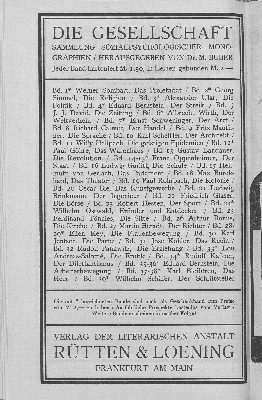 DIE GESELLSCHAFT
SAMMLUNG SOZIALPSYCHOLOGISCHER MONO-
GRAPHIEN / HERAUSGEGEBEN VON DR. M. BUBER
Jeder Band kartoniert M. 1.50, in Leinen gebunden M. 2.—
Bd. 1* Werner Sombart, Das Proletariat / Bd. 2* Georg
Simmel, Die Religion / Bd. 3* Alexander Ular, Die
Politik / Bd. 4* Eduard Bernstein, Der Streik / Bd. 5
J. J. David, Die Zeitung / Bd. 6* Albrecht Wirth, Der
Weltverkehr / Bd. 7* Ernst Schweninger, Der Arzt
Bd. 8 Richard Calwer, Der Handel / Bd. 9 Fritz Mauth-
ner, Die Sprache / Bd. 10 Karl Scheffler, Der Architekt /
Bd. 11 Willy Hellpach, Die geistigen Epidemien / Bd. 12*
Paul Göhre, Das Warenhaus / Bd. 13 Gustav Landauer,
Die Revolution / Bd. 14/15* Franz Oppenheimer, Der
Staat / Bd. 16 Ludwig Gurlitt, Die Schule / Bd. 17 Hell-
muth von Gerlach, Das Parlament / Bd. 18 Max Burck-
hard, Das Theater / Bd. 19 Paul Rohrbach, Die Kolonie /
Bd. 20 Oscar Bie, Das Kunstgewerbe / Bd. 21 Ludwig
Brinkmann, Der Ingenieur / Bd. 22 Friedrich Glaser,
Die Börse / Bd. 23 Robert Hessen, Der Sport / Bd. 24*
Wilhelm Ostwald, Erfinder und Entdecker / Bd. 25
Ferdinand Tönnies, Die Sitte / Bd. 26 Arthur Bonus,
Die Kirche / Bd. 27 Martin Beradt, Der Richter / Bd. 28/
29* Ellen Key, Die Frauenbewegung / Bd. 30 Karl
Jentsch, Die Partei / Bd. 31 Josef Kohler, Das Recht /
Bd. 32 Rudolf Pannwitz, Die Erziehung / Bd. 33* Lou
Andreas-Salomé, Die Erotik / Bd. 34* Rudolf Kassner,
Der Dilettantismus / Bd. 35 Eduard Bernstein, Die
Arbeiterbewegung / Bd. 37/38* Karl Bleibtreu, Das
Heer / Bd. 39* Wilhelm Schäfer, Der Schriftsteller
VERLAG DER LITERARISCHEN ANSTALT
RÜTTEN & LOENING
FRANKFURT AM MAIN